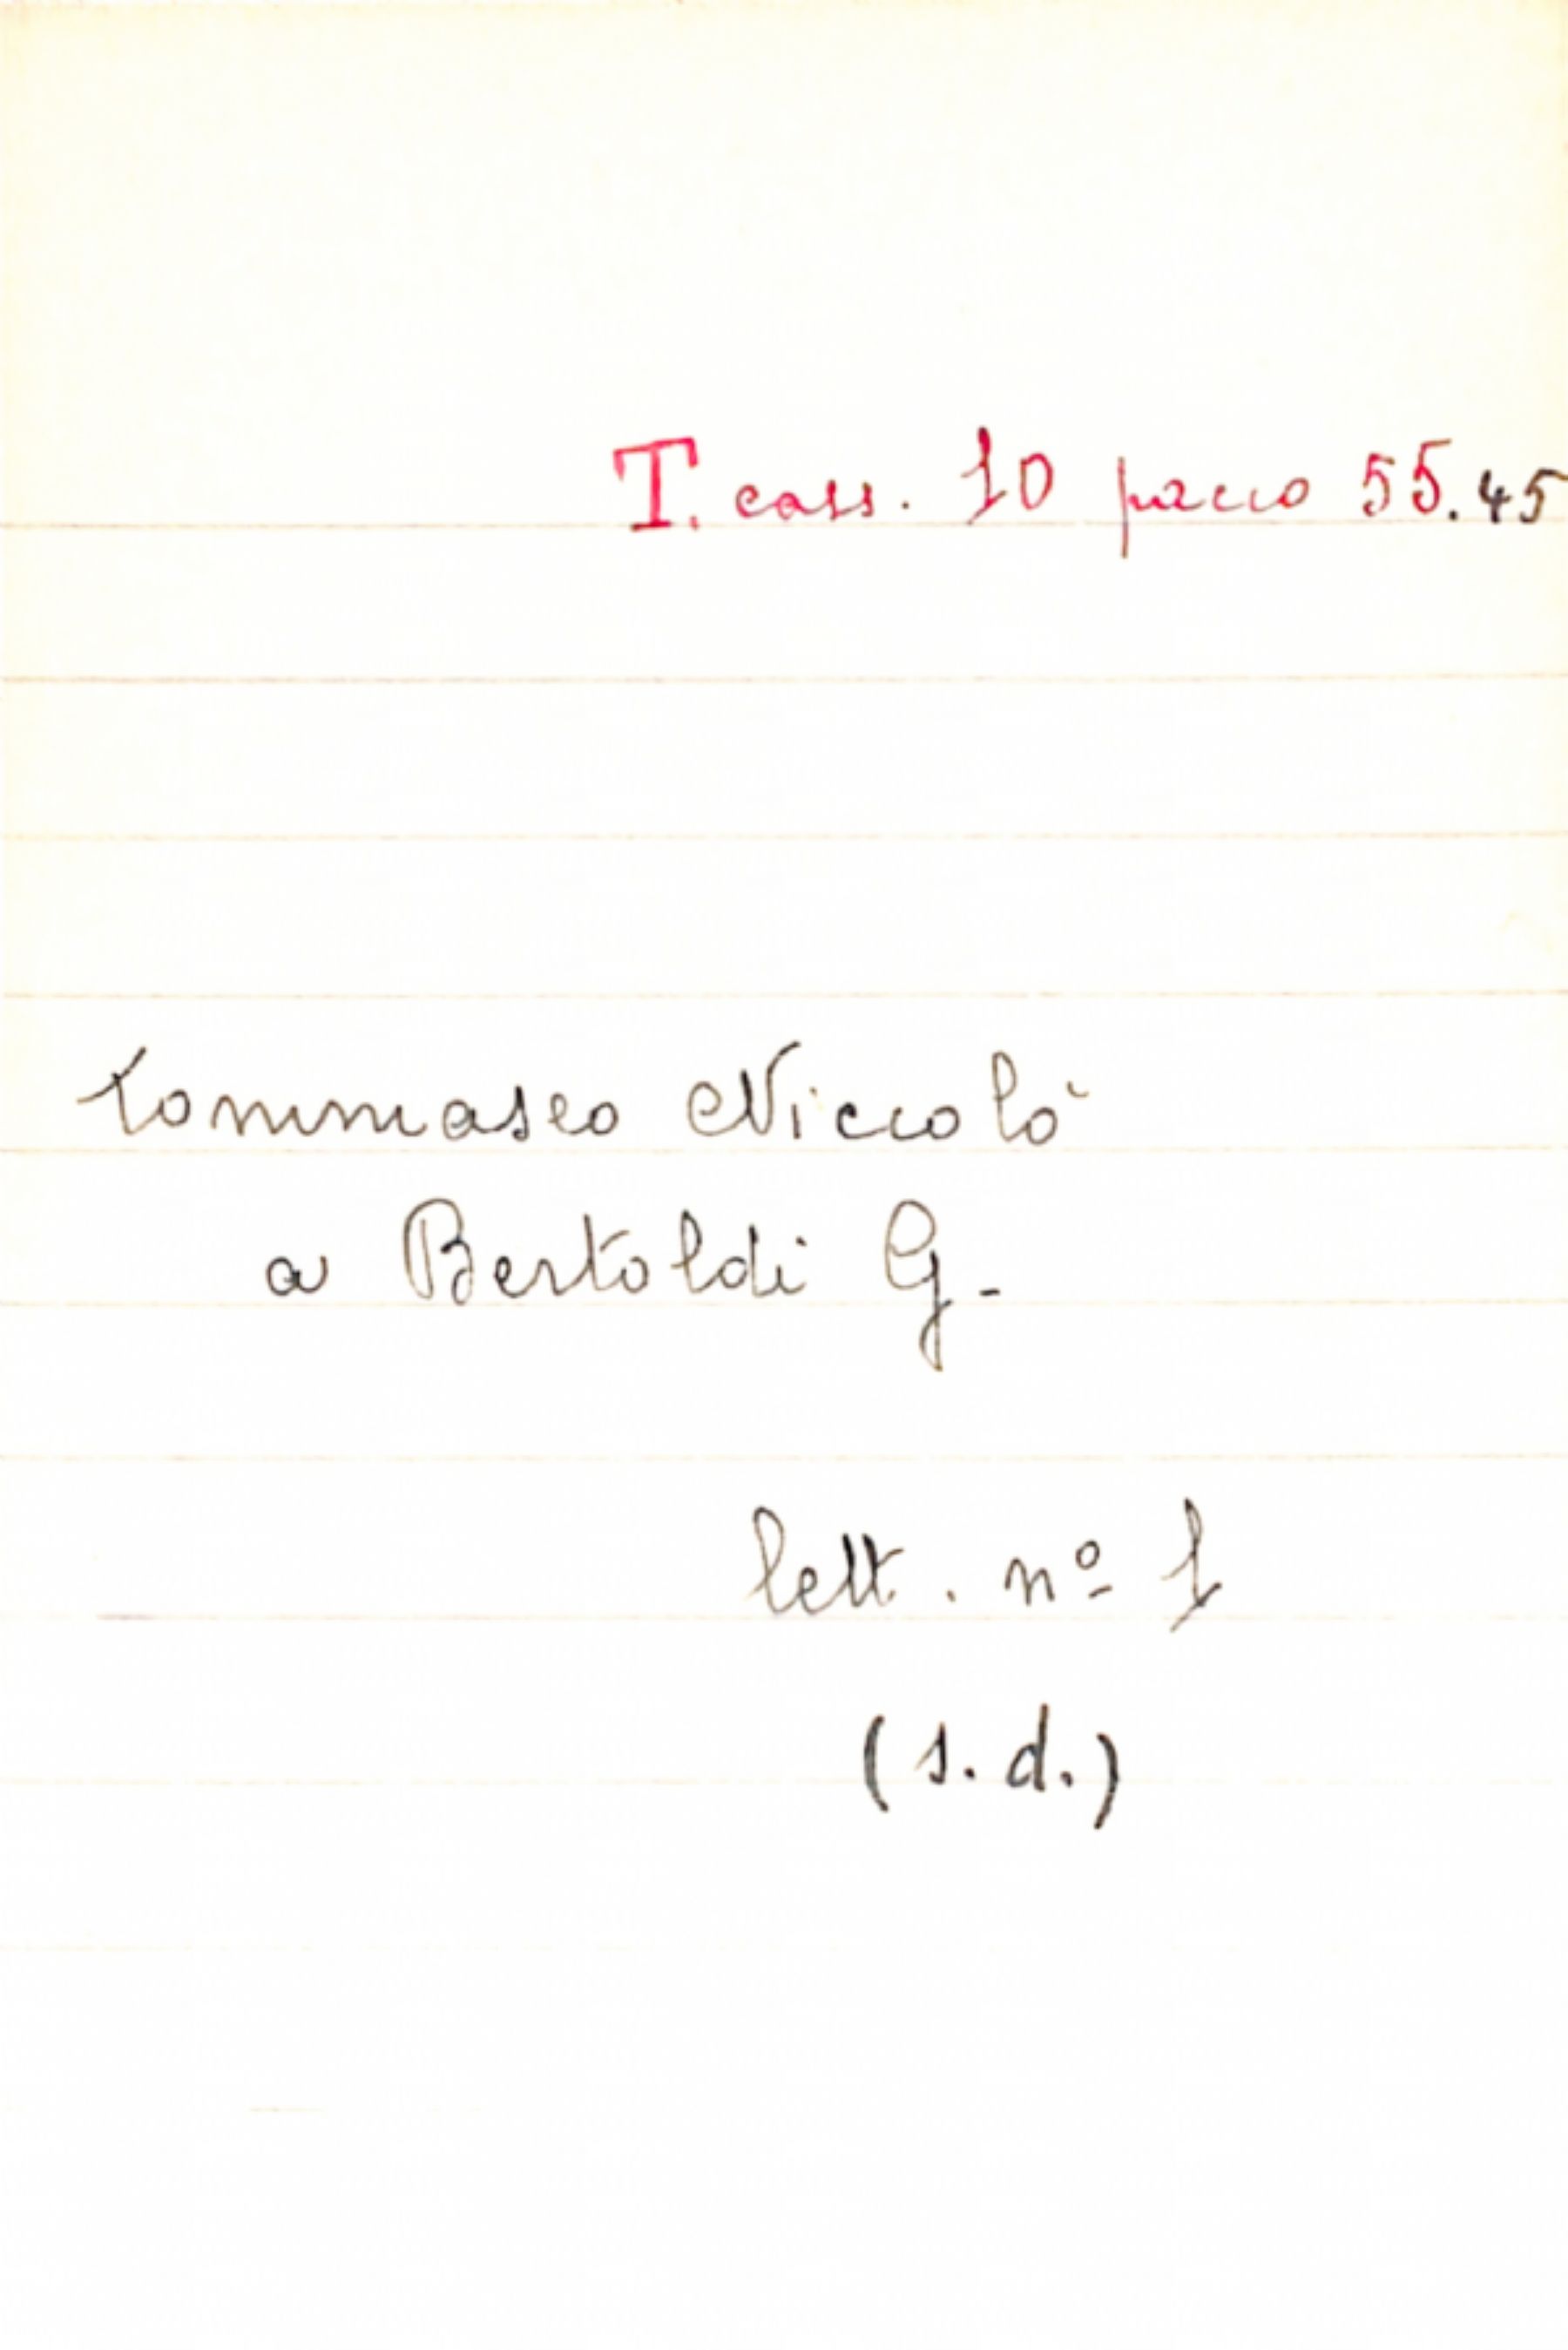 T. cass. 10 pacco 55.45
Tommaseo Niccolò
a Bertoldi G.
lett. nº 1
(s.d.)